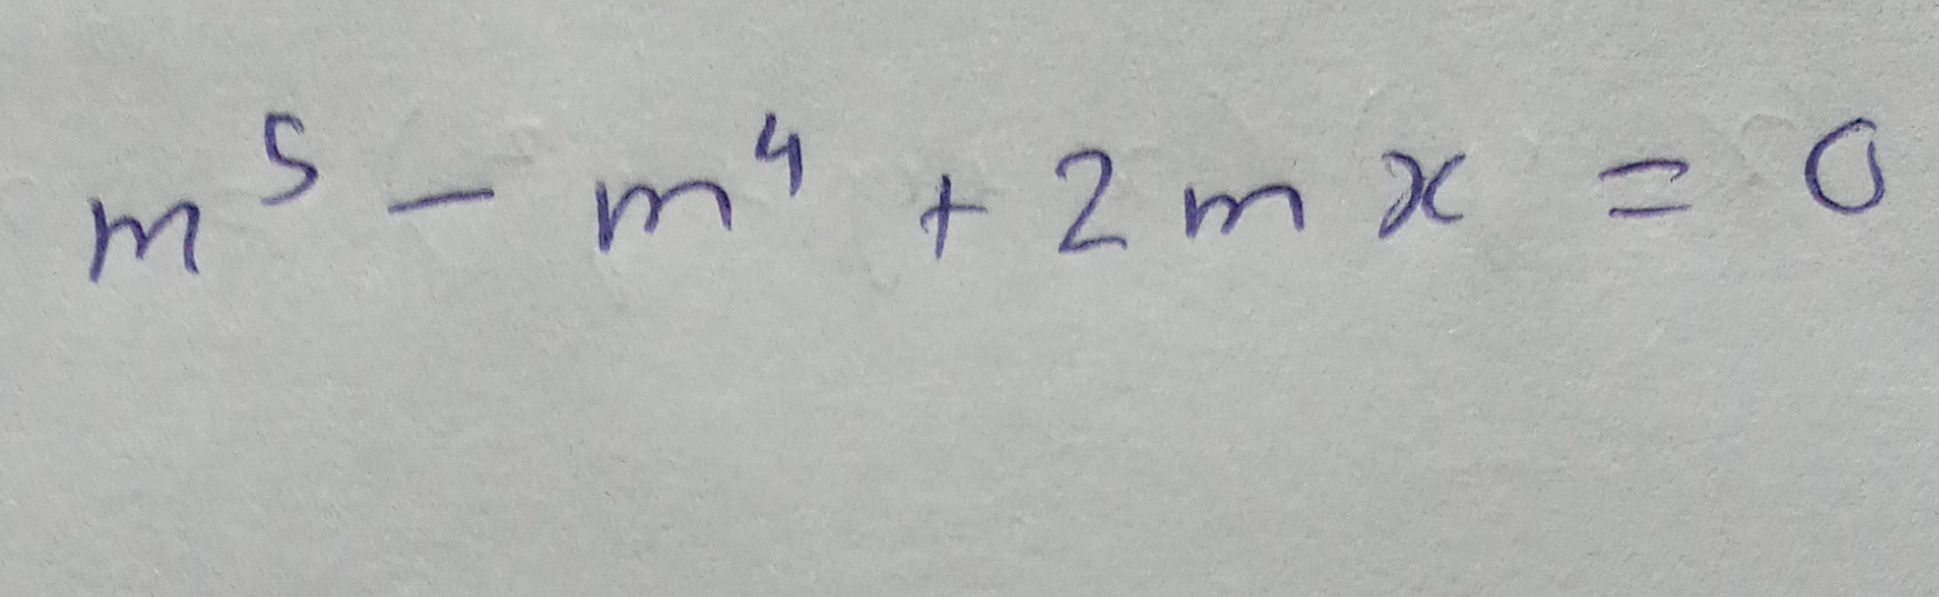 m⁵ - m⁴ + 2mx = 0